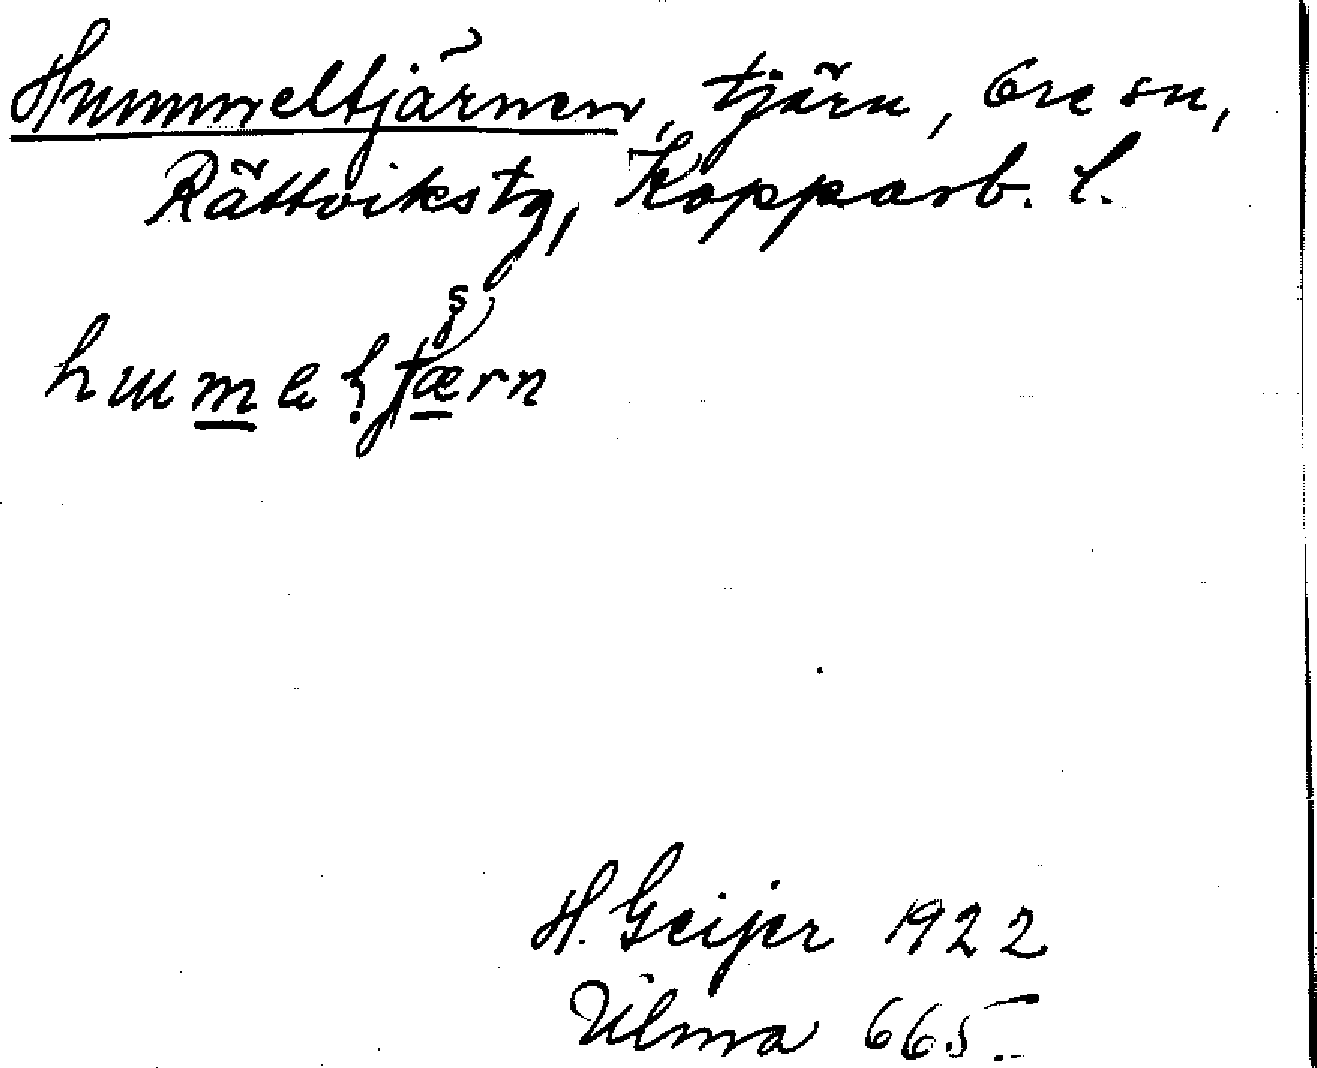 Hummeltjärnen, tjärn, Ore sn,
Rättvikstg, Kopparb. l.
H. Geijer 1922
Ulma 665.